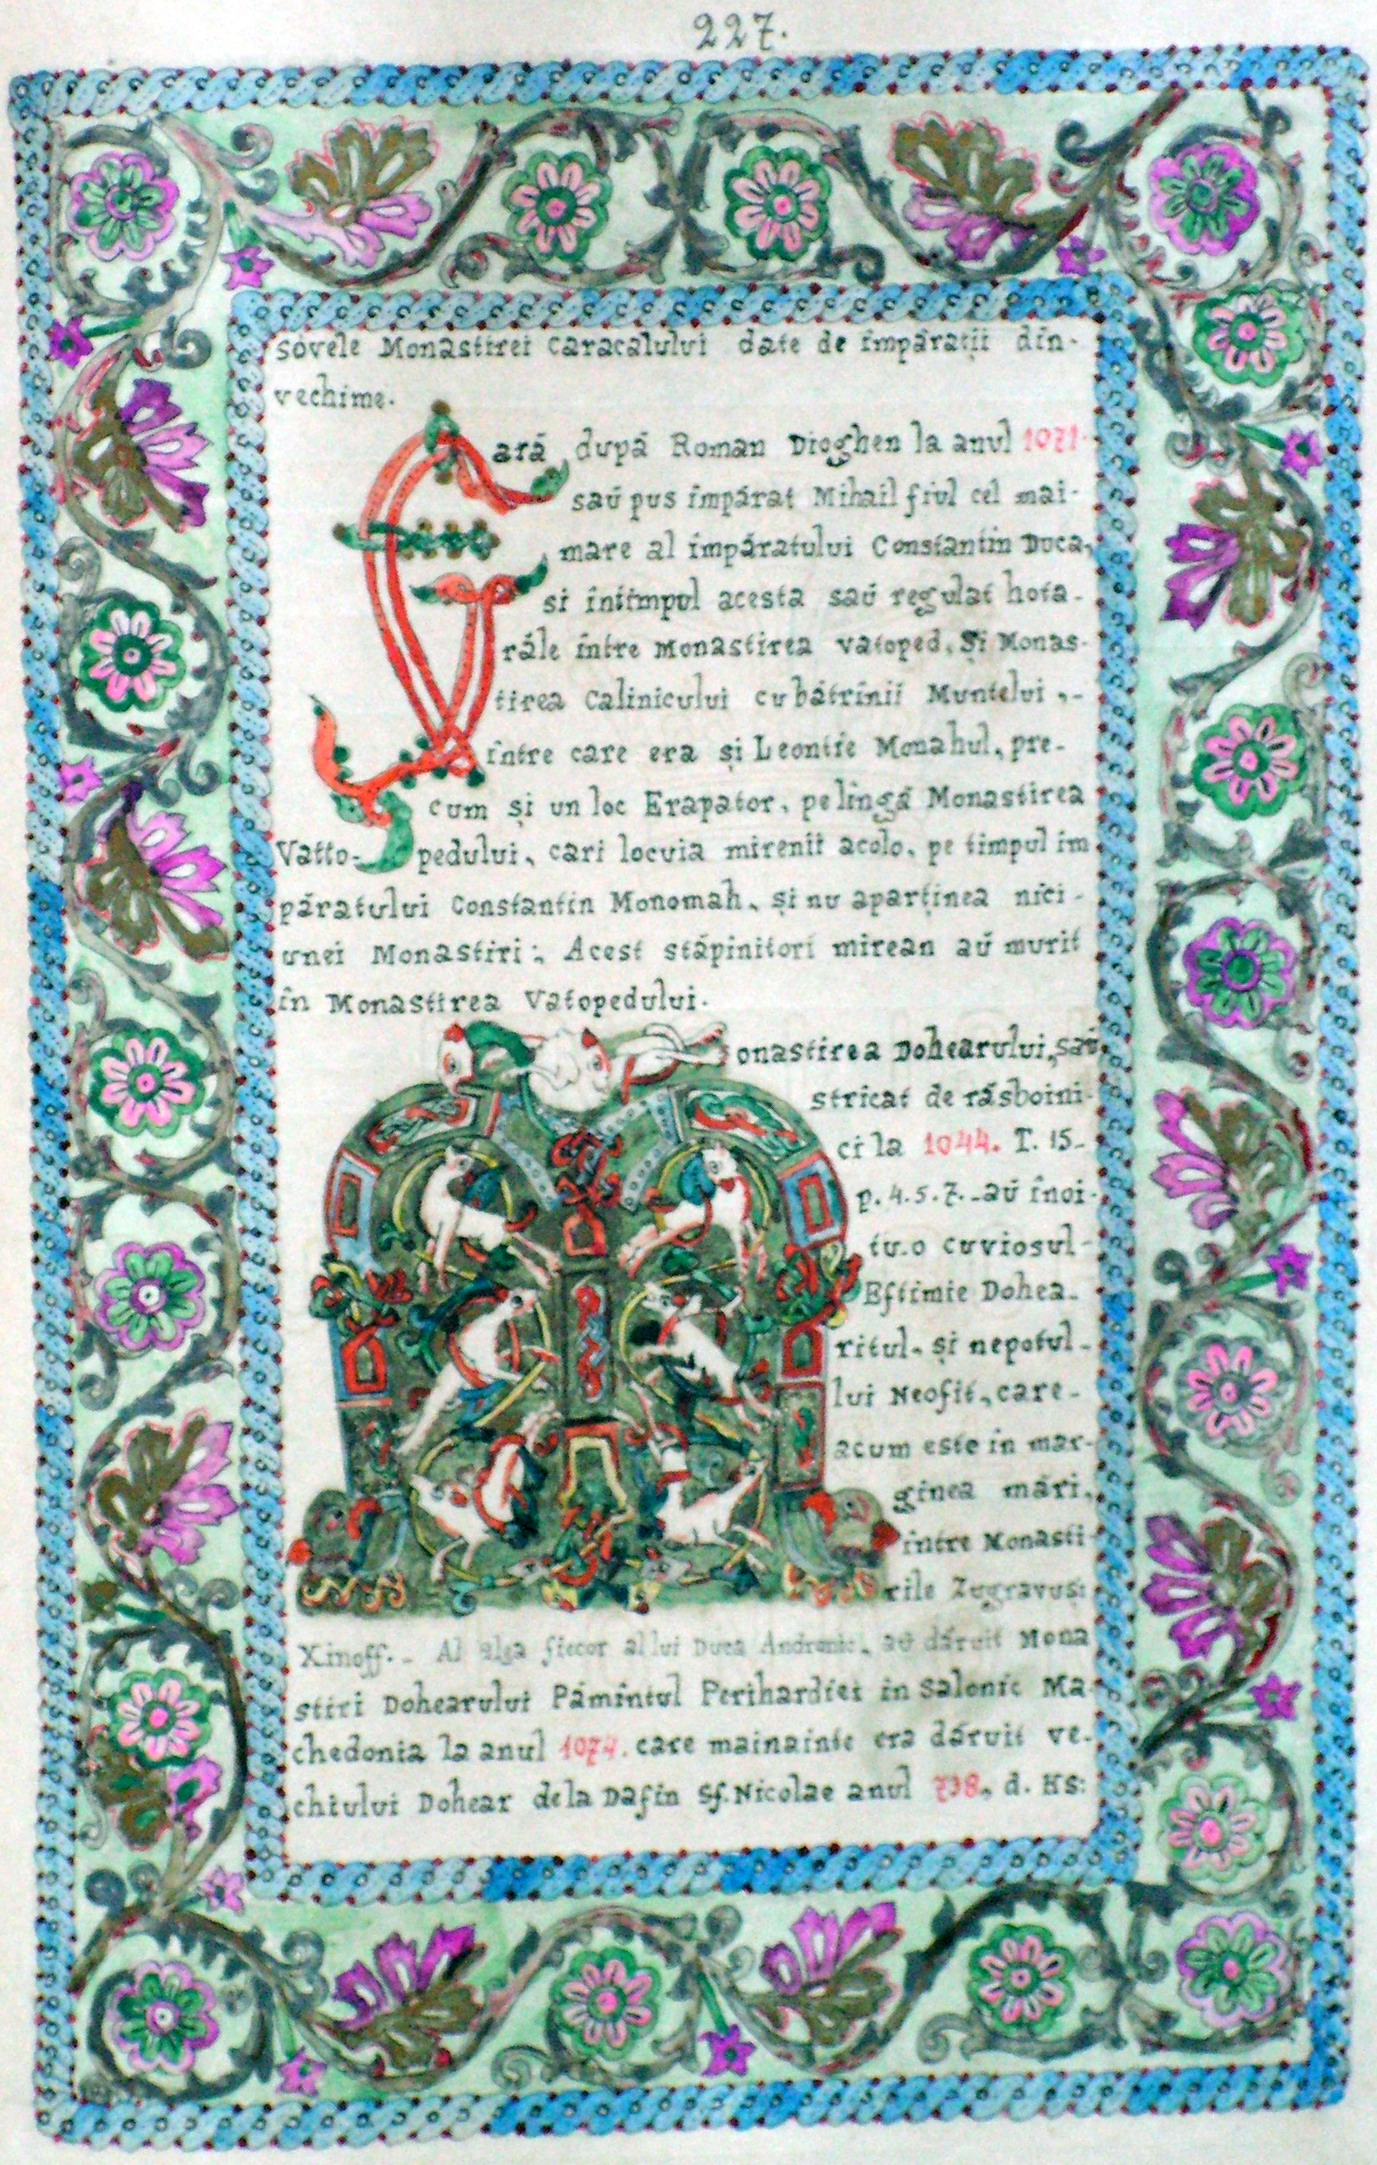 227.
sovele Monastirei Caracalului date de împărații din-
vechime.
Eară după Roman Dioghen la anul 1071.
saŭ pus împărat Mihail fiul cel mai-
mare al împăratului Constantin Duca,
si întimpul acesta saŭ regulat hota-
răle între Monastirea Vatoped, Și Monas-
tirea Calinicului cu bătrînii Muntelui ,-
între care era și Leontie Monahul, pre-
cum și un loc Erapator, pe lîngă Monastirea
Vatto- pedului, cari locuia mirenii acolo, pe timpul îm
păratului Constantin Monomah, și nu aparținea nici-
unei Monastiri; Acest stăpinitori mirean aŭ murit
în Monastirea Vatopedului.
Monastirea Dohearului, saŭ
stricat de răsboini-
ci la 1044. T. 15-
p. 4. 5. 7. -aŭ înoi-
tu.o cuviosul-
Eftimie Dohea-
ritul, și nepotul-
lui Neofit, care-
acum este în mar-
ginea mări,
intre Monasti-
rile Zugravuși
Xinoff. - Al fiecor al lui Duca aŭ dăruit Mona
stiri Dohearului Pămîntul Perihardiei in Salonic Ma-
chedonia la anul 1074. care mainainte era dăruit ve-
chiului Dohear dela Dafin Sf. Nicolae anul 738, d. Hs: